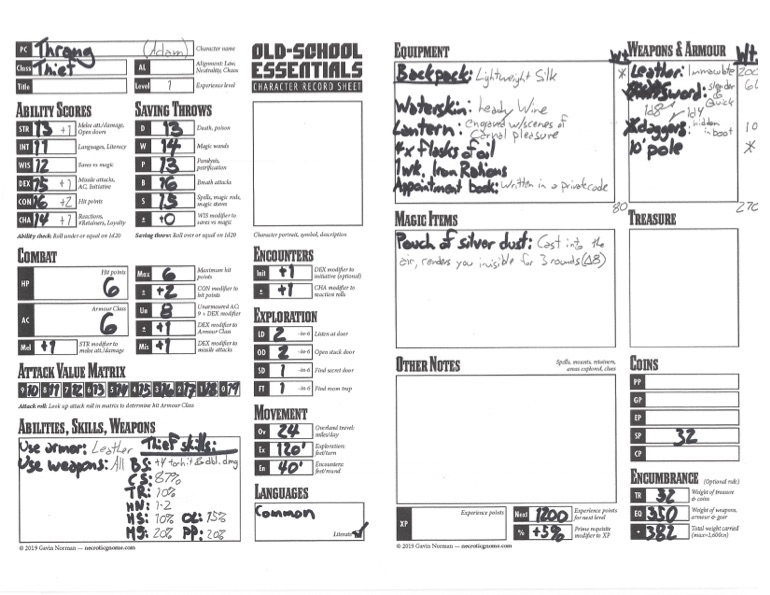 PC Thrang (Adam) Character name
Class Thief AL Alignment: Law, Neutrality, Chaos
Title Level 1 Experience level
OLD-SCHOOL
ESSENTIALS
CHARACTER RECORD SHEET
ABILITY SCORES
STR 13 +1 Melee att./damage, Open doors
INT 11 Languages, Literacy
WIS 12 Saves vs magic
DEX 15 +1 Missile attacks, AC, Initiative
CON 16 +2 Hit points
CHA 14 +1 Reactions, #Retainers, Loyalty
Ability check: Roll under or equal on 1d20
SAVING THROWS
D 13 Death, poison
W 14 Magic wands
P 13 Paralysis, petrification
B 16 Breath attacks
S 15 Spells, magic rods, magic staves
± ±0 WIS modifier to saves vs magic
Saving throw: Roll over or equal on 1d20
Character portrait, symbol, description
COMBAT
HP 6 Hit points
Max 6 Maximum hit points
± +2 CON modifier to hit points
AC 6 Armour Class
Un 8 Unarmoured AC, 9 + DEX modifier
± +1 DEX modifier to Armour Class
Mel +1 STR modifier to melee att./damage
Mis +1 DEX modifier to missile attacks
ENCOUNTERS
Init +1 DEX modifier to initiative (optional)
± +1 CHA modifier to reaction rolls
EXPLORATION
LD 2 -in-6 Listen at door
OD 2 -in-6 Open stuck door
SD 1 -in-6 Find secret door
FT 1 -in-6 Find room trap
ATTACK VALUE MATRIX
9 10 8 11 7 12 6 13 5 14 4 15 3 16 2 17 1 18 0 19
Attack roll: Look up attack roll in matrix to determine hit Armour Class
MOVEMENT
Ov 24 Overland travel: miles/day
Ex 120' Exploration: feet/turn
En 40' Encounter: feet/round
ABILITIES, SKILLS, WEAPONS
Use armor: Leather
Use weapons: All
Thief skills:
BS: +4 to hit & dbl. dmg
CS: 87%
TR: 10%
HN: 1-2
HS: 10% OL: 15%
MS: 20% PP: 20%
LANGUAGES
Common
Literate
© 2019 Gavin Norman — necroticgnome.com
EQUIPMENT
Wt
Backpack: Lightweight Silk
Waterskin: heady Wine
Lantern: engraved w/scenes of
carnal pleasure
4x flasks of oil
1 wk. Iron Rations
Appointment book: Written in a private code
80
WEAPONS & ARMOUR
Wt
* Leather: Immaculate 200
Sword: slender & Quick
1d8 1d4
daggers: hidden in boot 10
10' pole *
270
MAGIC ITEMS
Pouch of silver dust: Cast into the
air, renders you invisible for 3 rounds (Δ8)
TREASURE
OTHER NOTES
Spells, mounts, retainers, areas explored, clues
COINS
PP
GP
EP
SP 32
CP
ENCUMBRANCE (Optional rule)
TR 32 Weight of treasure & coins
EQ 350 Weight of weapons, armour & gear
382 Total weight carried (max=1,600cn)
XP Experience points
Next 1200 Experience points for next level
% +5% Prime requisite modifier to XP
© 2019 Gavin Norman — necroticgnome.com